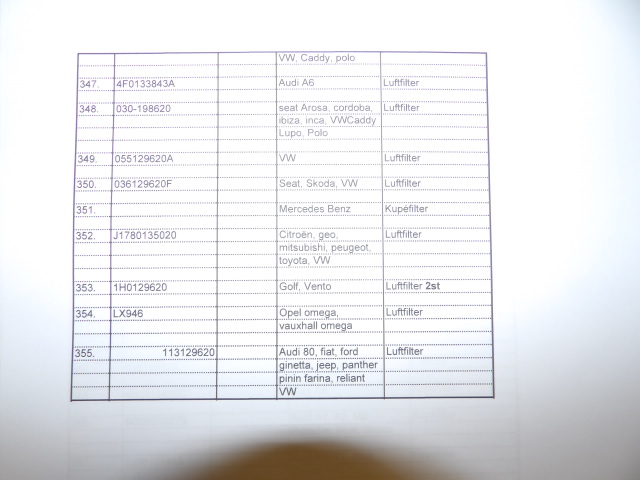 VW, Caddy, polo
347. 4F0133843A Audi A6 Luftfilter
348. 030-198620 seat Arosa, cordoba, Luftfilter
ibiza, inca, VWCaddy
Lupo, Polo
349. 055129620A VW Luftfilter
350. 036129620F Seat, Skoda, VW Luftfilter
351. Mercedes Benz Kupéfilter
352. J1780135020 Citroën, geo, Luftfilter
mitsubishi, peugeot,
toyota, VW
353. 1H0129620 Golf, Vento Luftfilter 2st
354. LX946 Opel omega, Luftfilter
vauxhall omega
355. 113129620 Audi 80, fiat, ford Luftfilter
ginetta, jeep, panther
pinin farina, reliant
VW